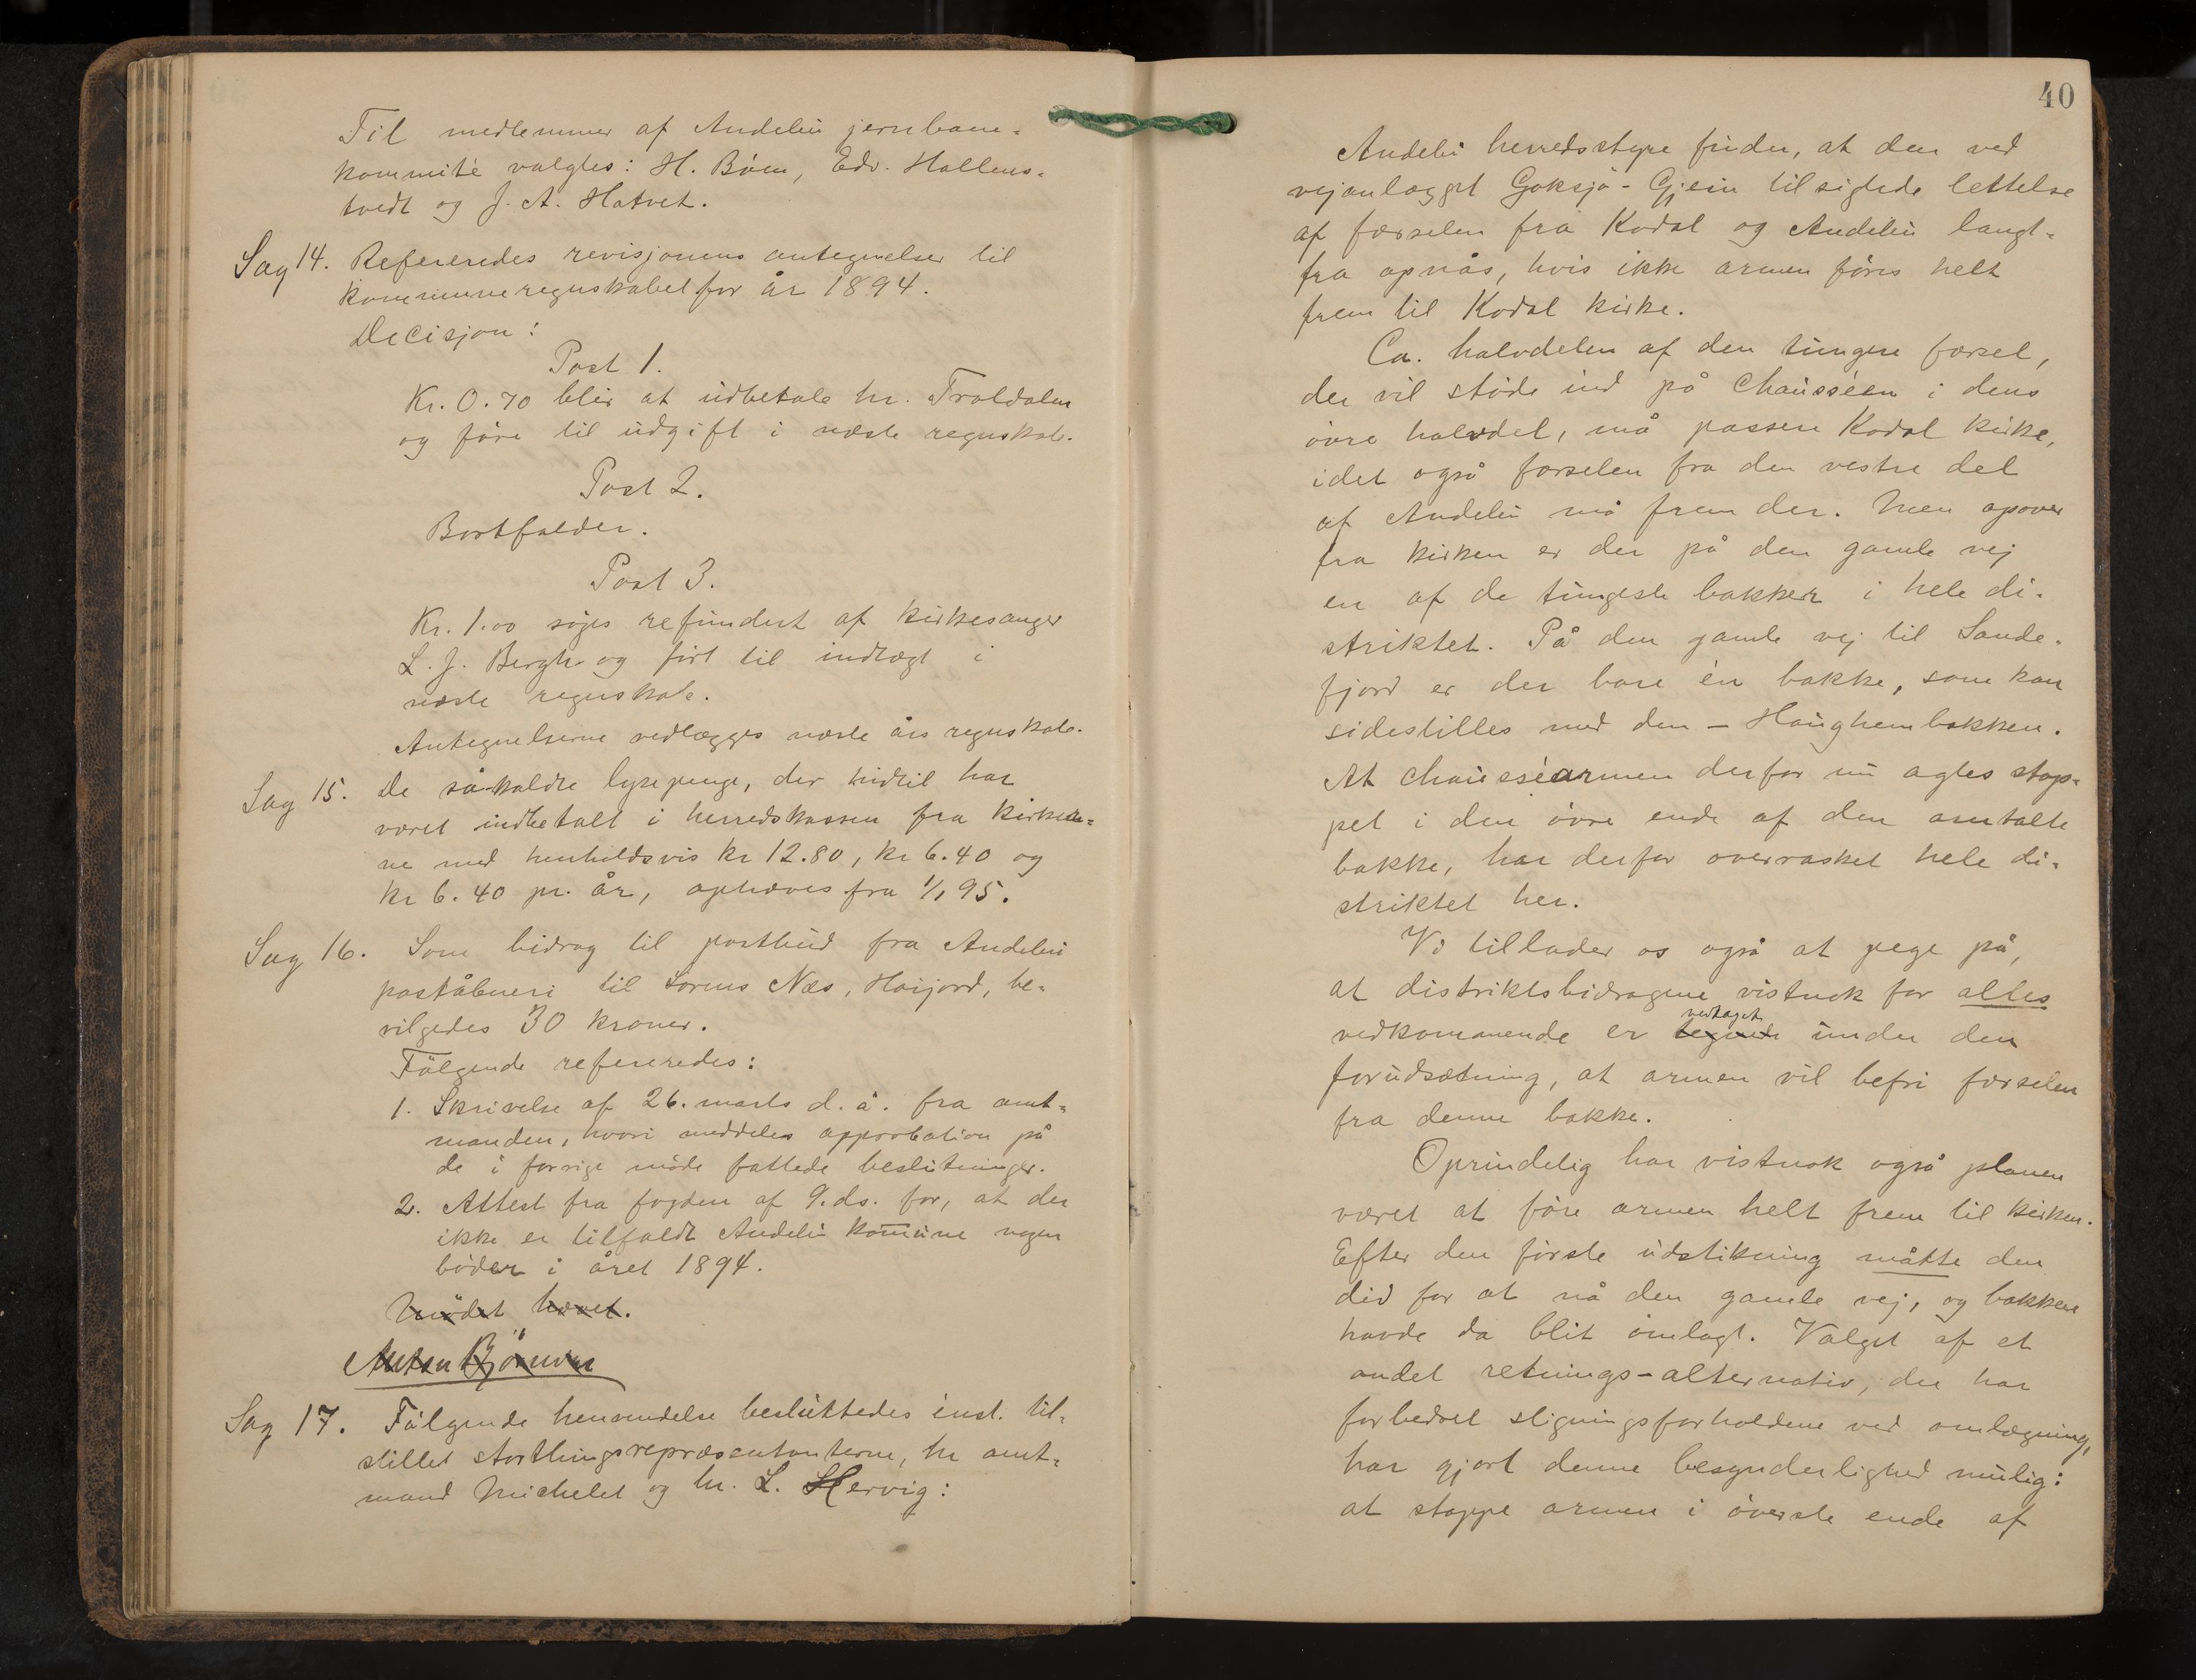 Til medlemmer af Andebu jernbane=
kommité valgtes: H. Bøen, Edv. Hallens=
tvedt og J. A. Hatvet.
Sag 14. Refereredes revisjonens antegnelser til
kommuneregnskabet for år 1894.
Decisjon:
Post 1.
Kr. 0.70 blir at udbetale hr. Troldalen
og føre til udgift i næste regnskab.
Post 2.
Bortfalder.
Post 3.
Kr. 1.00 søges refundert af kirkesanger
L. J. Bergh og ført til indtægt i
næste regnskab.
Antegnelserne vedlægges næste års regnskab.
Sag 15. De såkaldte lysepenge, der hidtil har
været indbetalt i herredskassen fra kirker=
ne med henholdsvis kr 12.80, kr 6.40 og
kr 6.40 pr. år, ophæves fra 1/1 95.
Sag 16. Som bidrag til postbud fra Andebu
poståbneri til Sørens Næs, Høijord, be=
vilgedes 30 kroner.
Følgende refereredes:
1. Skrivelse af 26. marts d. å. fra amt=
manden, hvori meddeles approbation på
de i forrige møde fattede beslutninger.
2. Attest fra fogden af 9. ds. for, at der
ikke er tilfaldt Andebu kommune nogen
bøder i året 1894.
Mødet hævet.
Anton Bjørnøen
Sag 17. Følgende henvendelse besluttedes inst. til=
stillet storthingsrepræsentanterne, hr amt=
mand Michelet og hr. L. Hervig:
40
Andebu herredsstyre finder, at den ved
vejanlægget Goksjø - Gjein tilsigtede lettelse
af færselen fra Kodal og Andebu langt=
fra opnås, hvis ikke armen føres helt
frem til Kodal kirke.
Ca. halvdelen af den tungere færsel,
der vil støde ind på Chausséen i dens
øvre halvdel, må passere Kodal kirke,
idet også færselen fra den vestre del
af Andebu må frem der. Men opover
fra kirken er der på den gamle vej
en af de tungeste bakker i hele di=
striktet. På den gamle vej til Sande=
fjord er der bare én bakke, som kan
sidestilles med den - Haughembakken.
At chausséarmen derfor nu agtes stop=
pet i den øvre ende af den omtalte
bakke, har derfor overrasket hele di=
striktet her.
Vi tillader os også at pege på,
at distriktsbidragene vistnok for alles
vedkommende er tegnede vedtaget under den
forudsætning, at armen vil befri færselen
fra denne bakke.
Oprindelig har vistnok også planen
været at føre armen helt frem til kirken.
Efter den første udstikning måtte den
did for at nå den gamle vej, og bakken
havde da blit omlagt. Valget af et
andet retnings-alternativ, der har
forbedret stigningsforholdene ved omlægning,
har gjort denne besynderlighed mulig:
at stoppe armen i øverste ende af